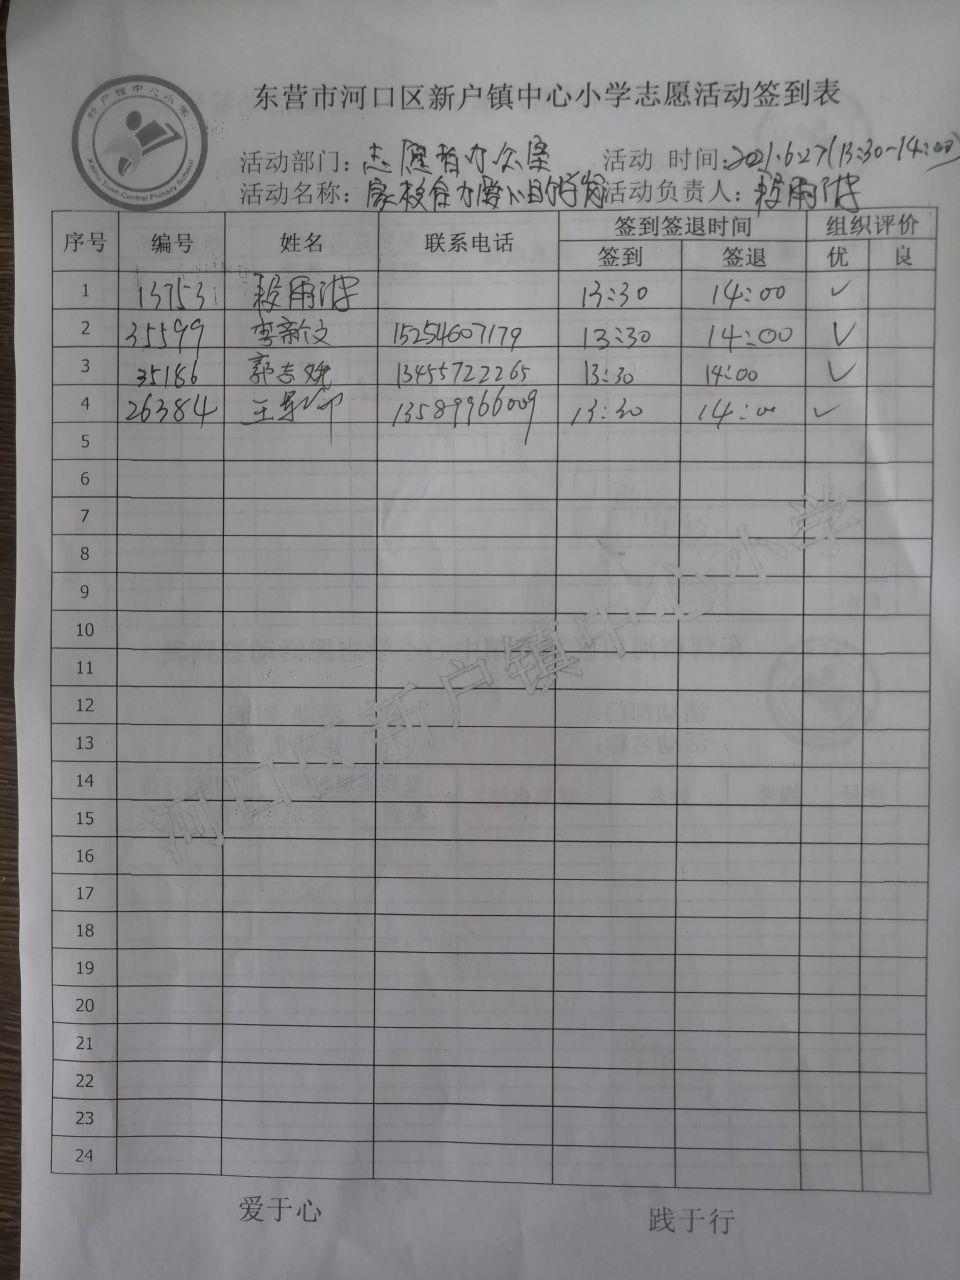 新户镇中心小学
Xinhu Town Central Primary School
东营市河口区新户镇中心小学志愿活动签到表
活动部门：志愿者办公室 活动 时间：2021.6.27(13:30-14:00)
活动名称：家校合力 活动负责人：
序号 编号 姓名 联系电话 签到签退时间 组织评价
签到 签退 优 良
1 13753 13:30 14:00 ✓
2 35599 李新文 15254607179 13:30 14:00 ✓
3 35186 郭志 13455722265 13:30 14:00 ✓
4 26384 王 13589966009 13:30 14:00 ✓
5
6
7
8
9
10
11
12
13
14
15
16
17
18
19
20
21
22
23
24
河口区新户镇中心小学
爱于心 践于行